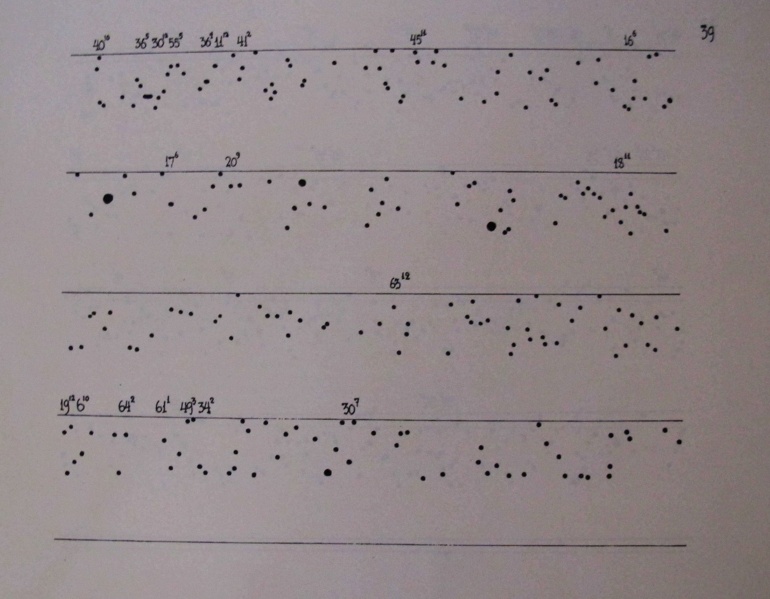 39
40¹⁶ 36⁵ 30¹² 55⁵ 36⁵ 11¹² 41² 45¹¹ 16⁶
17⁶ 20⁹ 18¹¹
63¹²
19¹² 6¹⁰ 64² 61¹ 49³ 34² 30⁷